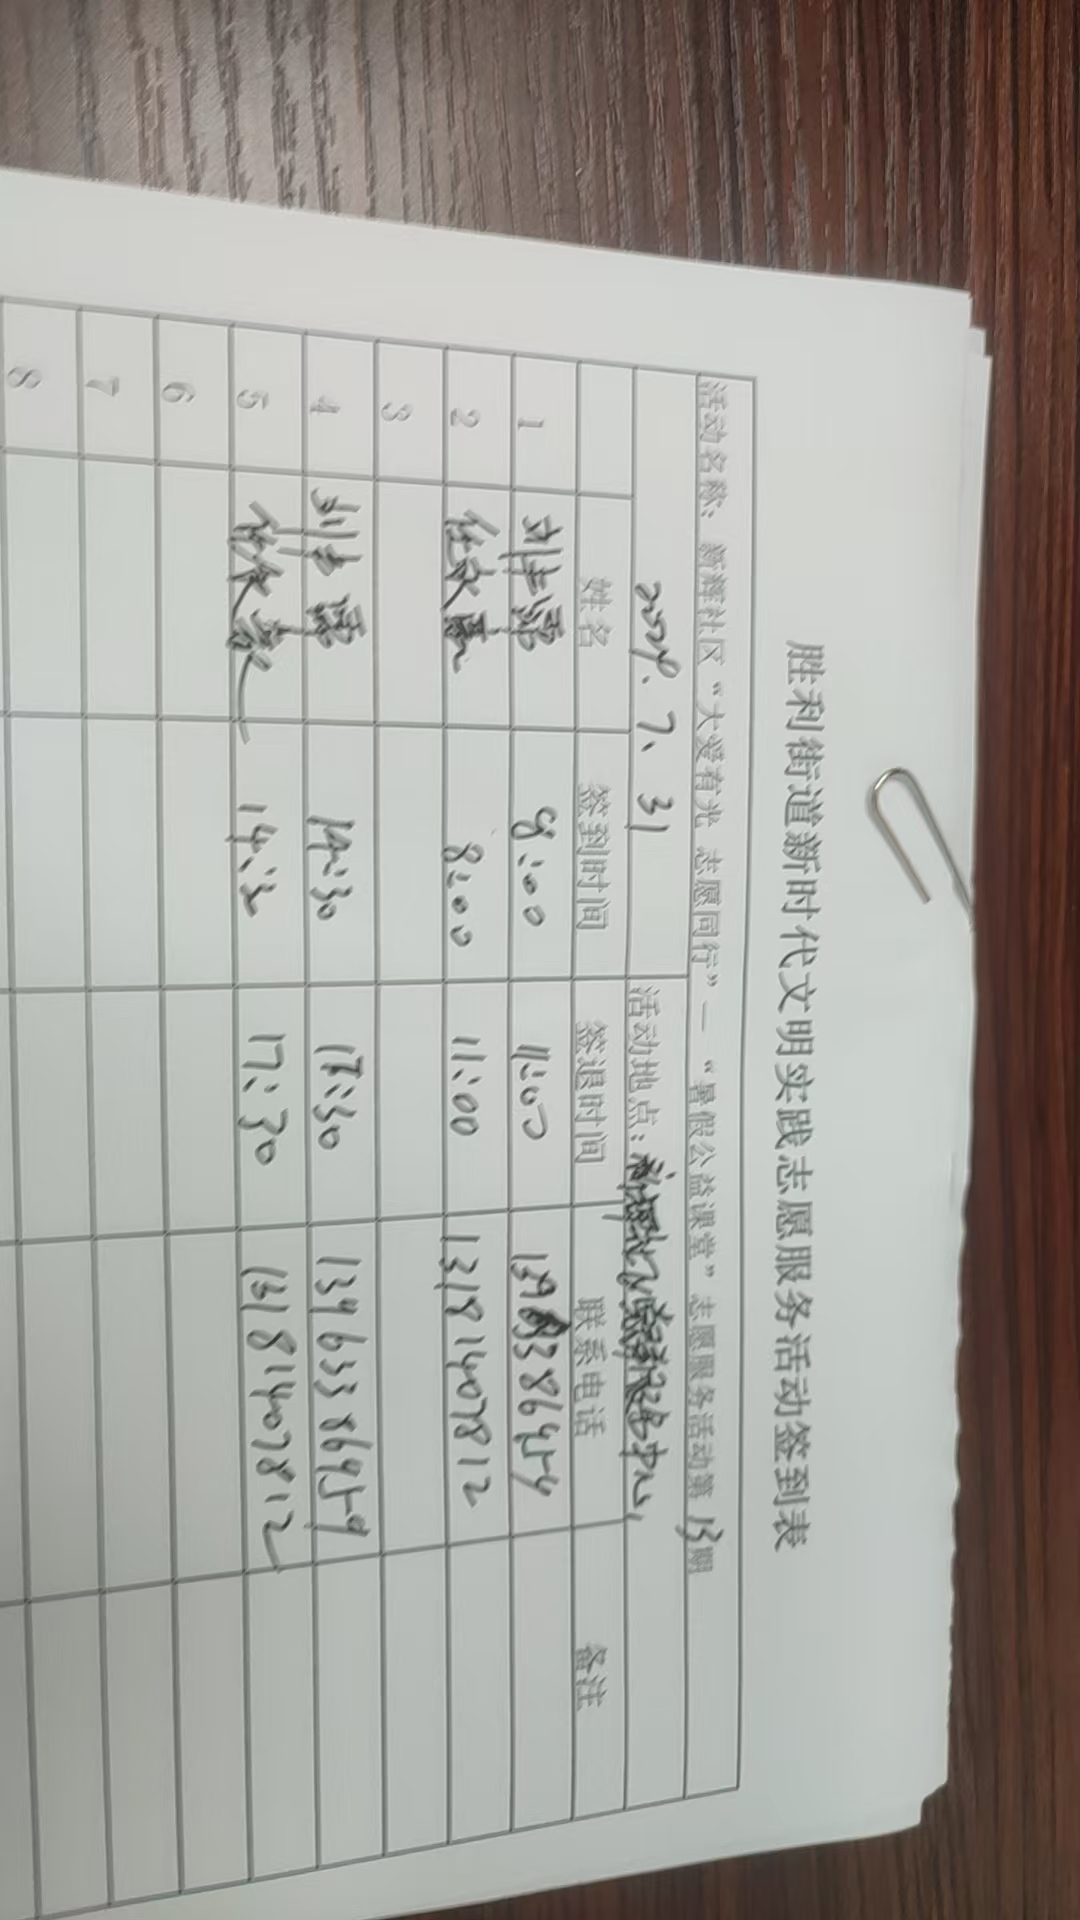 胜利街道新时代文明实践志愿服务活动签到表
活动名称: 新辉社区“大爱有光 志愿同行”—“暑假公益课堂”志愿服务活动第13期
2024. 7. 31 活动地点: 服务中心
姓名 签到时间 签退时间 联系电话 备注
1 刘 8:00 11:00
2 任文 8:00 11:00 13181407812
3
4 刘 14:30 17:30 13963386959
5 任文 14:30 17:30 13181407812
6
7
8